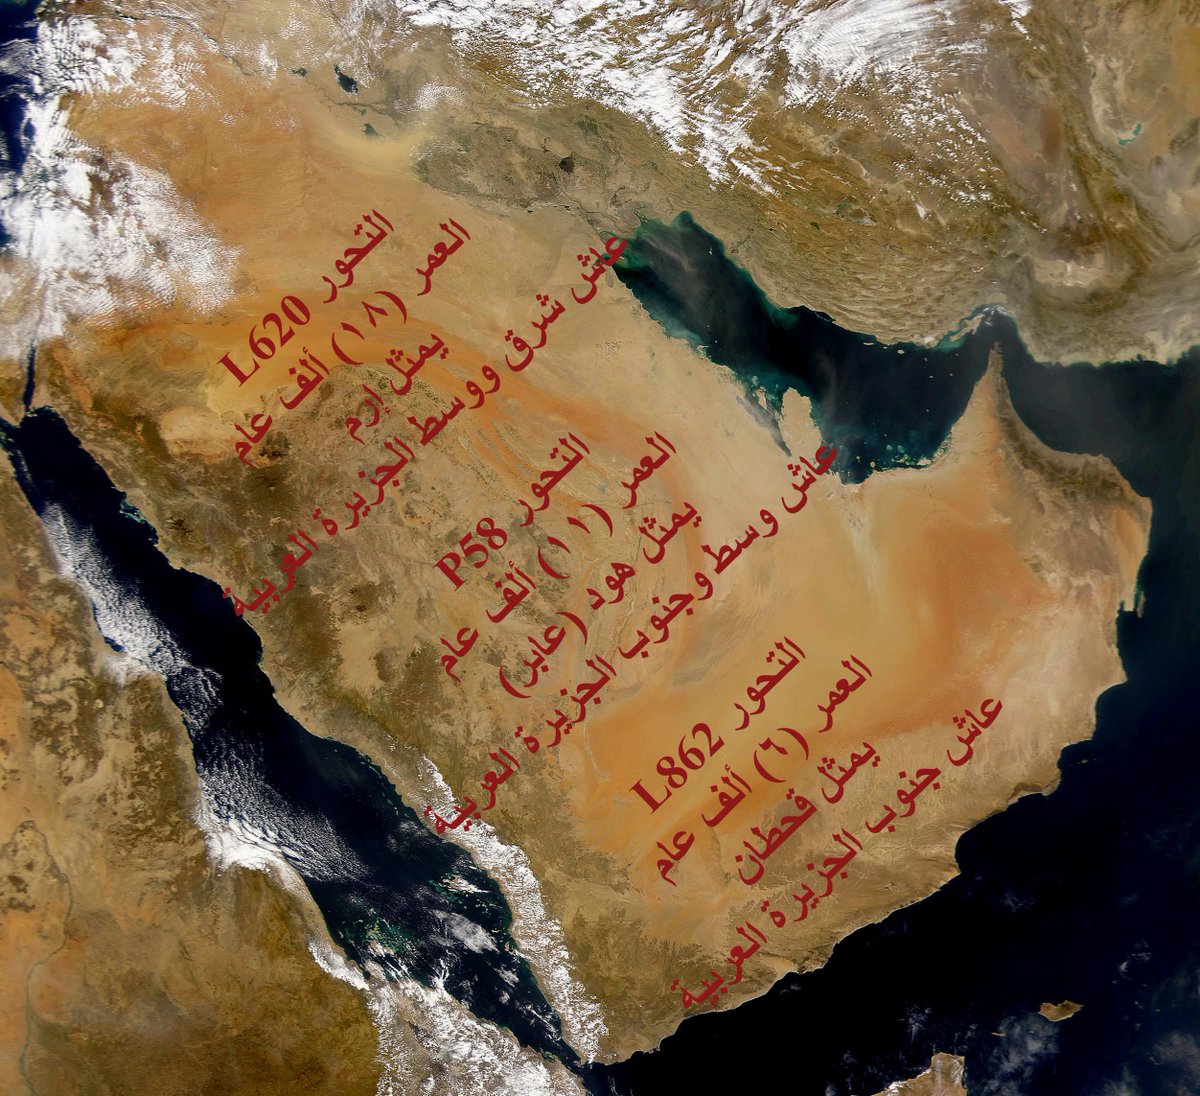 التحور L620
العمر (١٨) ألف عام
يمثل إرم
عاش شرق ووسط الجزيرة العربية
التحور P58
العمر (١١) ألف عام
يمثل هود (عابر)
عاش وسط وجنوب الجزيرة العربية
التحور L862
العمر (٦) ألف عام
يمثل قحطان
عاش جنوب الجزيرة العربية